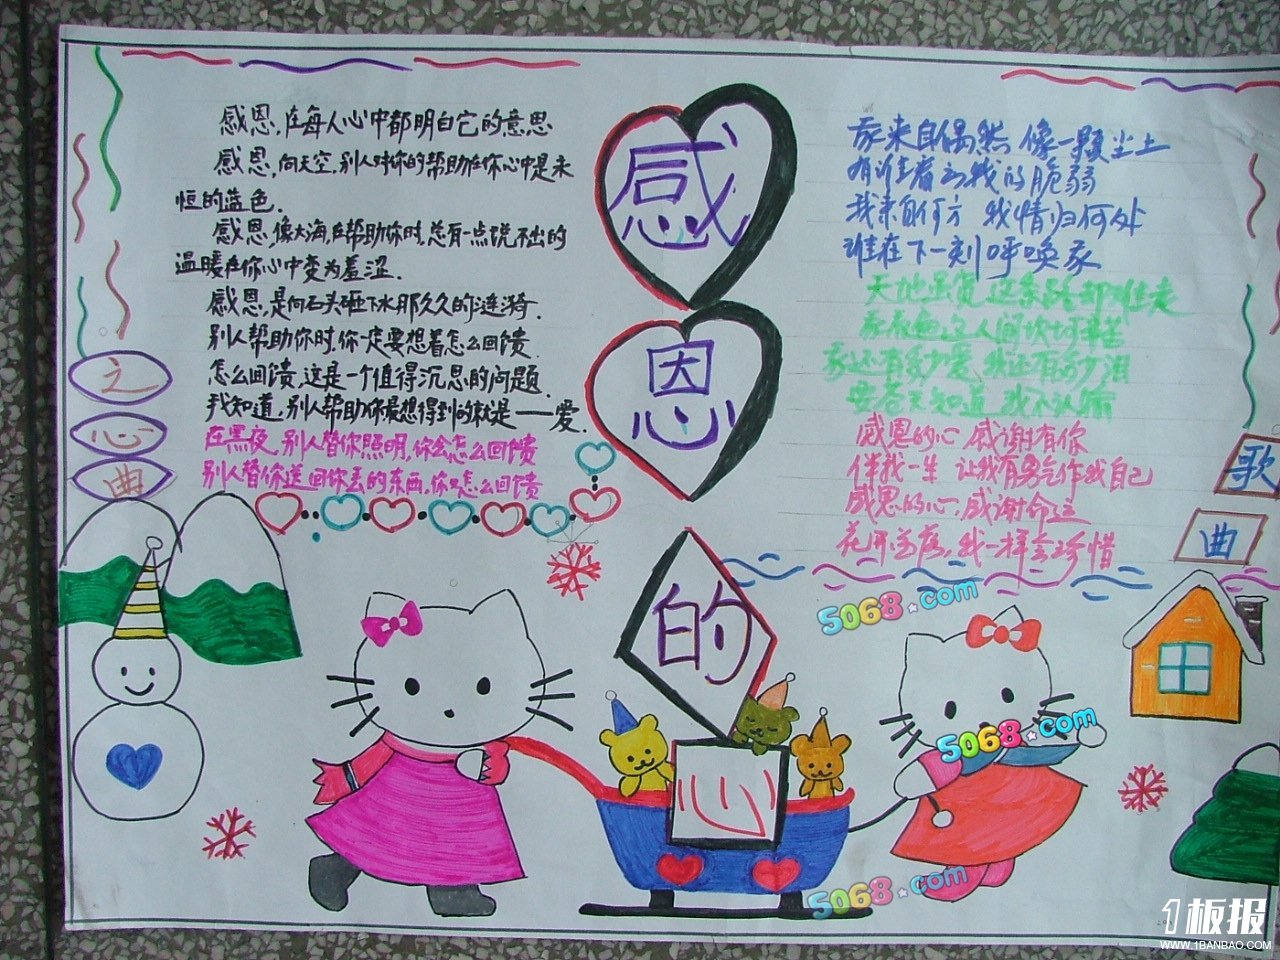 感恩,在每人心中都明白它的意思
感恩,向天空,别人对你的帮助在你心中是永
恒的蓝色.
感恩,像大海,在帮助你时,总有一点说不出的
温暖在你心中变为羞涩.
感恩,是向石头砸下水那久久的涟漪.
别人帮助你时,你一定要想着怎么回馈.
怎么回馈,这是一个值得沉思的问题.
我知道,别人帮助你最想得到的就是——爱.
在黑夜,别人替你照明,你会怎么回馈
别人替你送回你丢的东西,你又怎么回馈
之
心
曲
感
恩
的
心
我来自偶然 像一颗尘土
有谁看到我的脆弱
我来自何方 我情归何处
谁在下一刻呼唤我
天地虽宽 这条路却难走
我看遍这人间坎坷辛苦
我还有多少爱 我还有多少泪
要苍天知道 我不认输
感恩的心 感谢有你
伴我一生 让我有勇气作我自己
感恩的心,感谢命运
花开花落,我一样会珍惜
歌
曲
5068.com
5068.com
5068.com
1板报
WWW.1BANBAO.COM